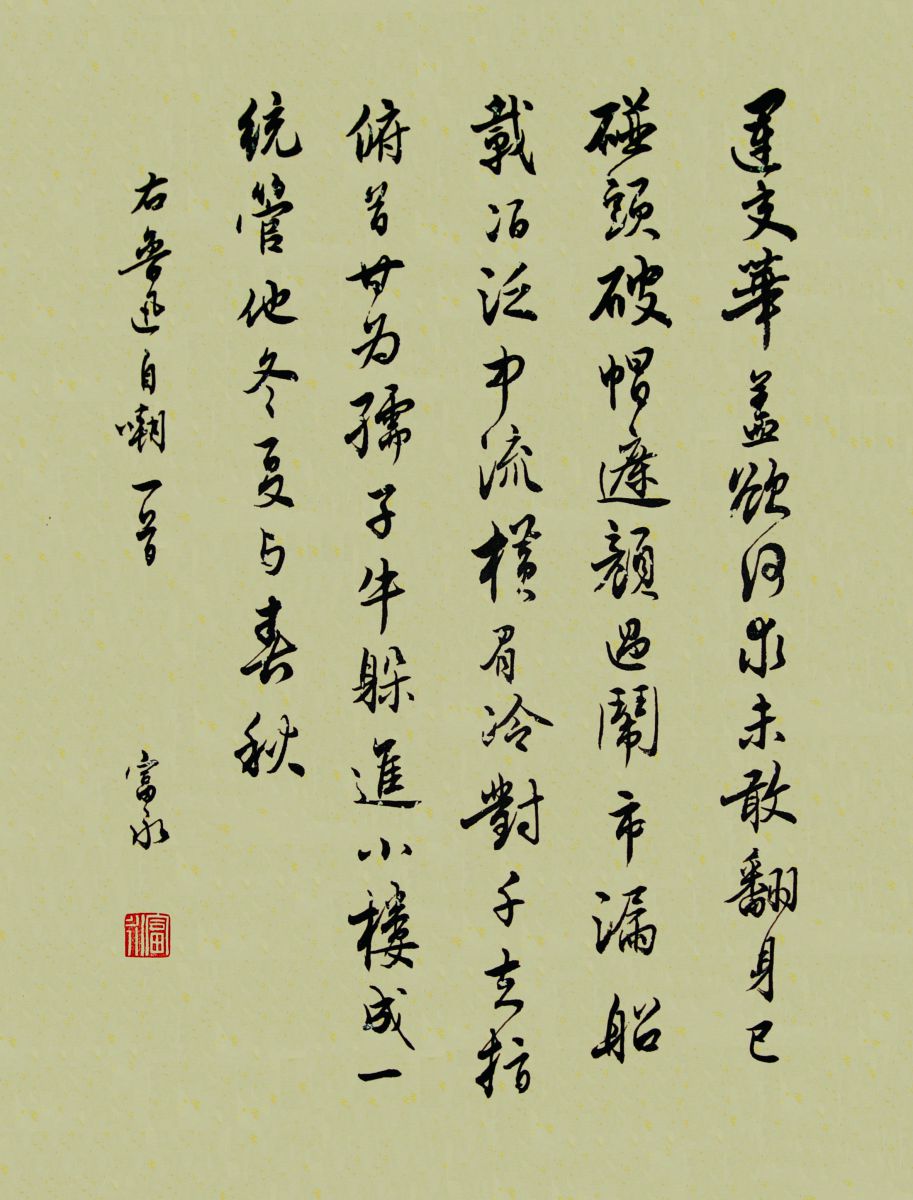 運交華蓋欲何求未敢翻身已
碰頭破帽遮顏過鬧市漏船
載酒泛中流橫眉冷對千夫指
俯首甘为孺子牛躲進小樓成一
統管他冬夏与春秋
右魯迅自嘲一首
富永
富永